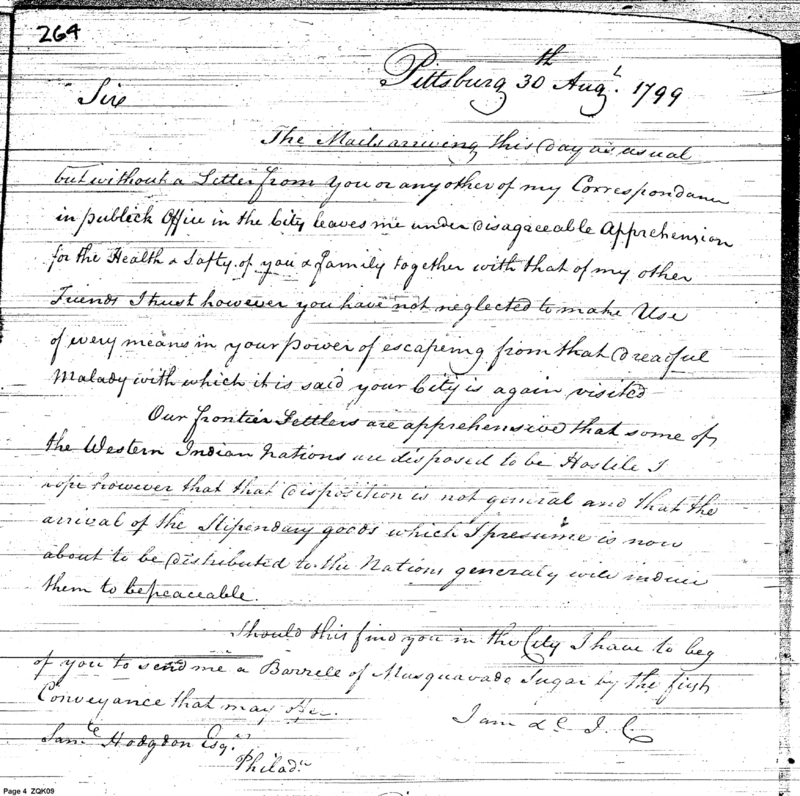 264
Pittsburg 30th Augt. 1799
Sir
The Mails arriveng this day as usual
but without a Letter from you or any other of my Correspondance
in publick Office in the City leaves me under disagaceable Apprehension
for the Health & Safty of you & family together with that of my other
Friends I trust however you have not neglected to make Use
of every means in your power of escapeing from that dreadful
Malady with which it is said your City is again visited
Our frontier Settlers are apprehensive that some of
the Western Indian Nations are disposed to be Hostile I
hope however that that disposition is not general and that the
arrival of the Stipendary goods which I presume is now
about to be distributed to the Nations generaly will induce
them to be peaceable.
Should this find you in the City I have to beg
of you to send me a Barrele of Musquavado Sugar by the first
Conveyance that may offer.
I am &c I. C.
Saml. Hodgdon Esqr.
Philada.
Page 4 ZQK09